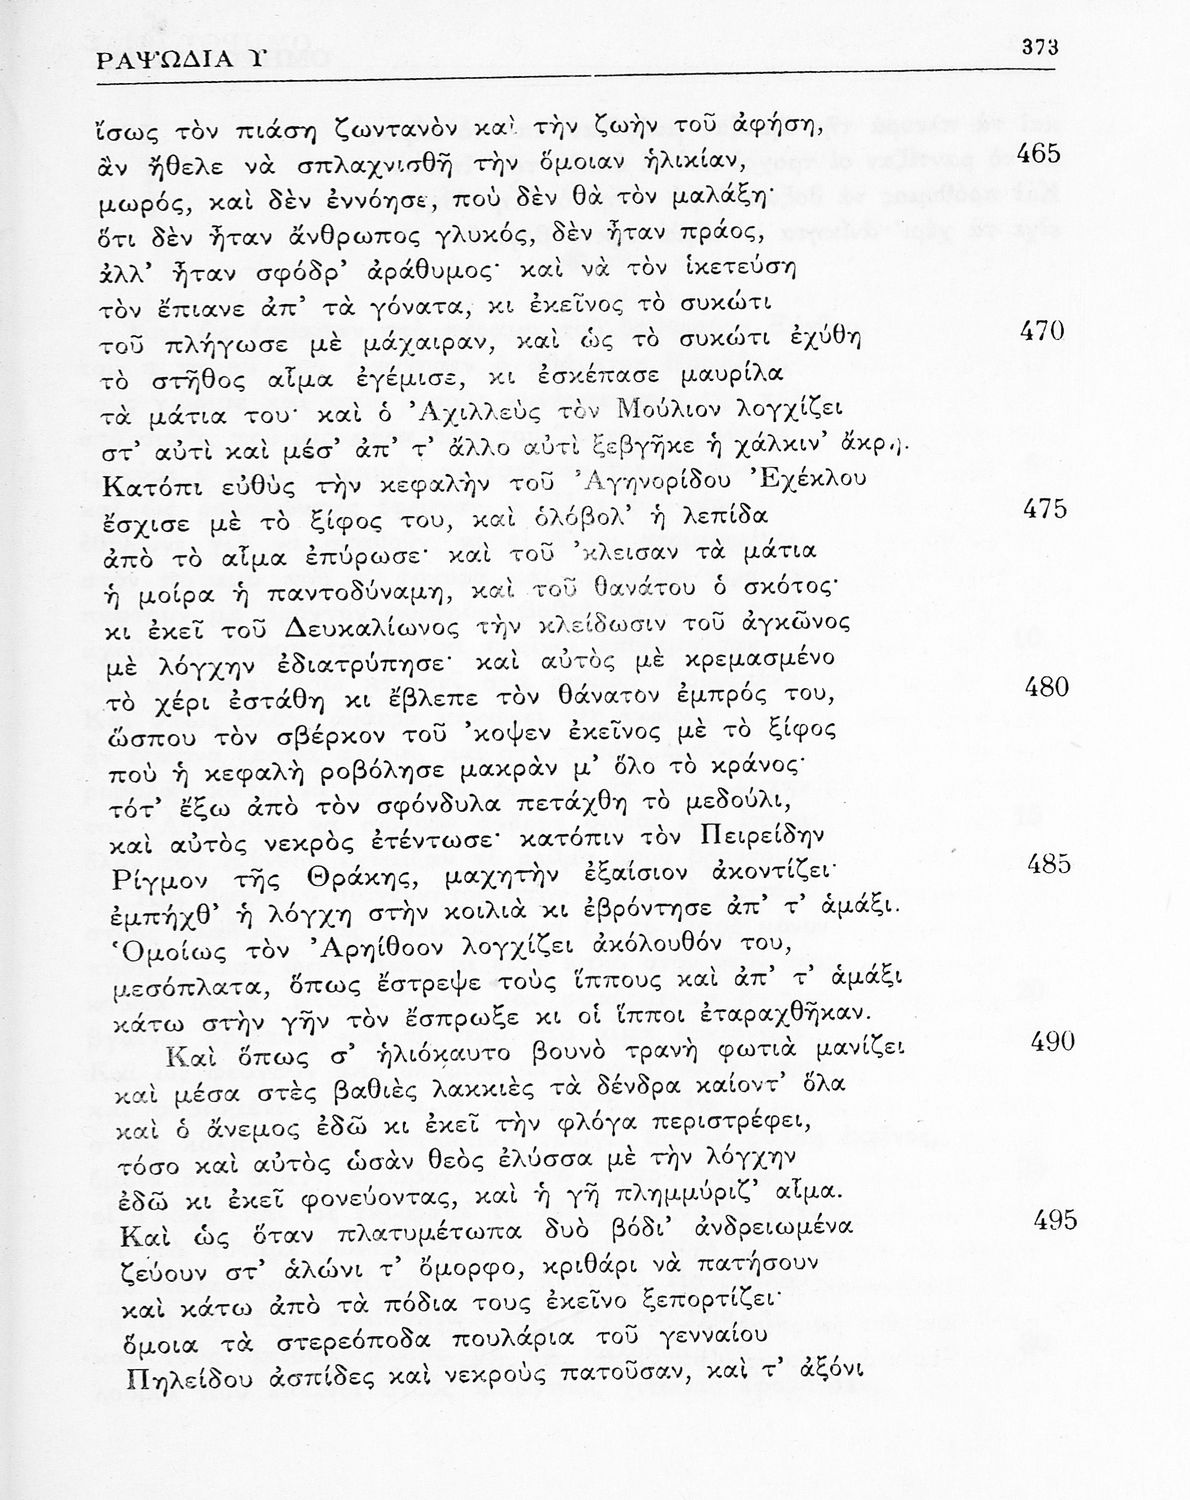 ΡΑΨΩΔΙΑ Υ 373
ἴσως τὸν πιάσῃ ζωντανὸν καὶ τὴν ζωὴν τοῦ ἀφήσῃ,
ἂν ἤθελε νὰ σπλαχνισθῇ τὴν ὅμοιαν ἡλικίαν, 465
μωρός, καὶ δὲν ἐννόησε, ποὺ δὲν θὰ τὸν μαλάξῃ·
ὅτι δὲν ἦταν ἄνθρωπος γλυκός, δὲν ἦταν πράος,
ἀλλ’ ἦταν σφόδρ’ ἀράθυμος· καὶ νὰ τὸν ἱκετεύσῃ
τὸν ἔπιανε ἀπ’ τὰ γόνατα, κι ἐκεῖνος τὸ συκώτι
τοῦ πλήγωσε μὲ μάχαιραν, καὶ ὡς τὸ συκώτι ἐχύθη 470
τὸ στῆθος αἷμα ἐγέμισε, κι ἐσκέπασε μαυρίλα
τὰ μάτια του· καὶ ὁ Ἀχιλλεὺς τὸν Μούλιον λογχίζει
στ’ αὐτὶ καὶ μέσ’ ἀπ’ τ’ ἄλλο αὐτὶ ξεβγῆκε ἡ χάλκιν’ ἄκρη.
Κατόπι εὐθὺς τὴν κεφαλὴν τοῦ Ἀγηνορίδου Ἐχέκλου
ἔσχισε μὲ τὸ ξίφος του, καὶ ὁλόβολ’ ἡ λεπίδα 475
ἀπὸ τὸ αἷμα ἐπύρωσε· καὶ τοῦ ’κλεισαν τὰ μάτια
ἡ μοίρα ἡ παντοδύναμη, καὶ τοῦ θανάτου ὁ σκότος·
κι ἐκεῖ τοῦ Δευκαλίωνος τὴν κλείδωσιν τοῦ ἀγκῶνος
μὲ λόγχην ἐδιατρύπησε· καὶ αὐτὸς μὲ κρεμασμένο
τὸ χέρι ἐστάθη κι ἔβλεπε τὸν θάνατον ἐμπρός του, 480
ὥσπου τὸν σβέρκον τοῦ ’κοψεν ἐκεῖνος μὲ τὸ ξίφος
ποὺ ἡ κεφαλὴ ροβόλησε μακρὰν μ’ ὅλο τὸ κράνος·
τότ’ ἔξω ἀπὸ τὸν σφόνδυλα πετάχθη τὸ μεδούλι,
καὶ αὐτὸς νεκρὸς ἐτέντωσε· κατόπιν τὸν Πειρείδην
Ρίγμον τῆς Θράκης, μαχητὴν ἐξαίσιον ἀκοντίζει· 485
ἐμπήχθ’ ἡ λόγχη στὴν κοιλιὰ κι ἐβρόντησε ἀπ’ τ’ ἁμάξι.
Ὁμοίως τὸν Ἀρηίθοον λογχίζει ἀκόλουθόν του,
μεσόπλατα, ὅπως ἔστρεψε τοὺς ἵππους καὶ ἀπ’ τ’ ἁμάξι
κάτω στὴν γῆν τὸν ἔσπρωξε κι οἱ ἵπποι ἐταραχθῆκαν.
Καὶ ὅπως σ’ ἡλιόκαυτο βουνὸ τρανὴ φωτιὰ μανίζει 490
καὶ μέσα στὲς βαθιὲς λακκιὲς τὰ δένδρα καίοντ’ ὅλα
καὶ ὁ ἄνεμος ἐδῶ κι ἐκεῖ τὴν φλόγα περιστρέφει,
τόσο καὶ αὐτὸς ὡσὰν θεὸς ἐλύσσα μὲ τὴν λόγχην
ἐδῶ κι ἐκεῖ φονεύοντας, καὶ ἡ γῆ πλημμύριζ’ αἷμα.
Καὶ ὡς ὅταν πλατυμέτωπα δυὸ βόδι’ ἀνδρειωμένα 495
ζεύουν στ’ ἁλώνι τ’ ὄμορφο, κριθάρι νὰ πατήσουν
καὶ κάτω ἀπὸ τὰ πόδια τους ἐκεῖνο ξεπορτίζει·
ὅμοια τὰ στερεόποδα πουλάρια τοῦ γενναίου
Πηλείδου ἀσπίδες καὶ νεκροὺς πατοῦσαν, καὶ τ’ ἀξόνι